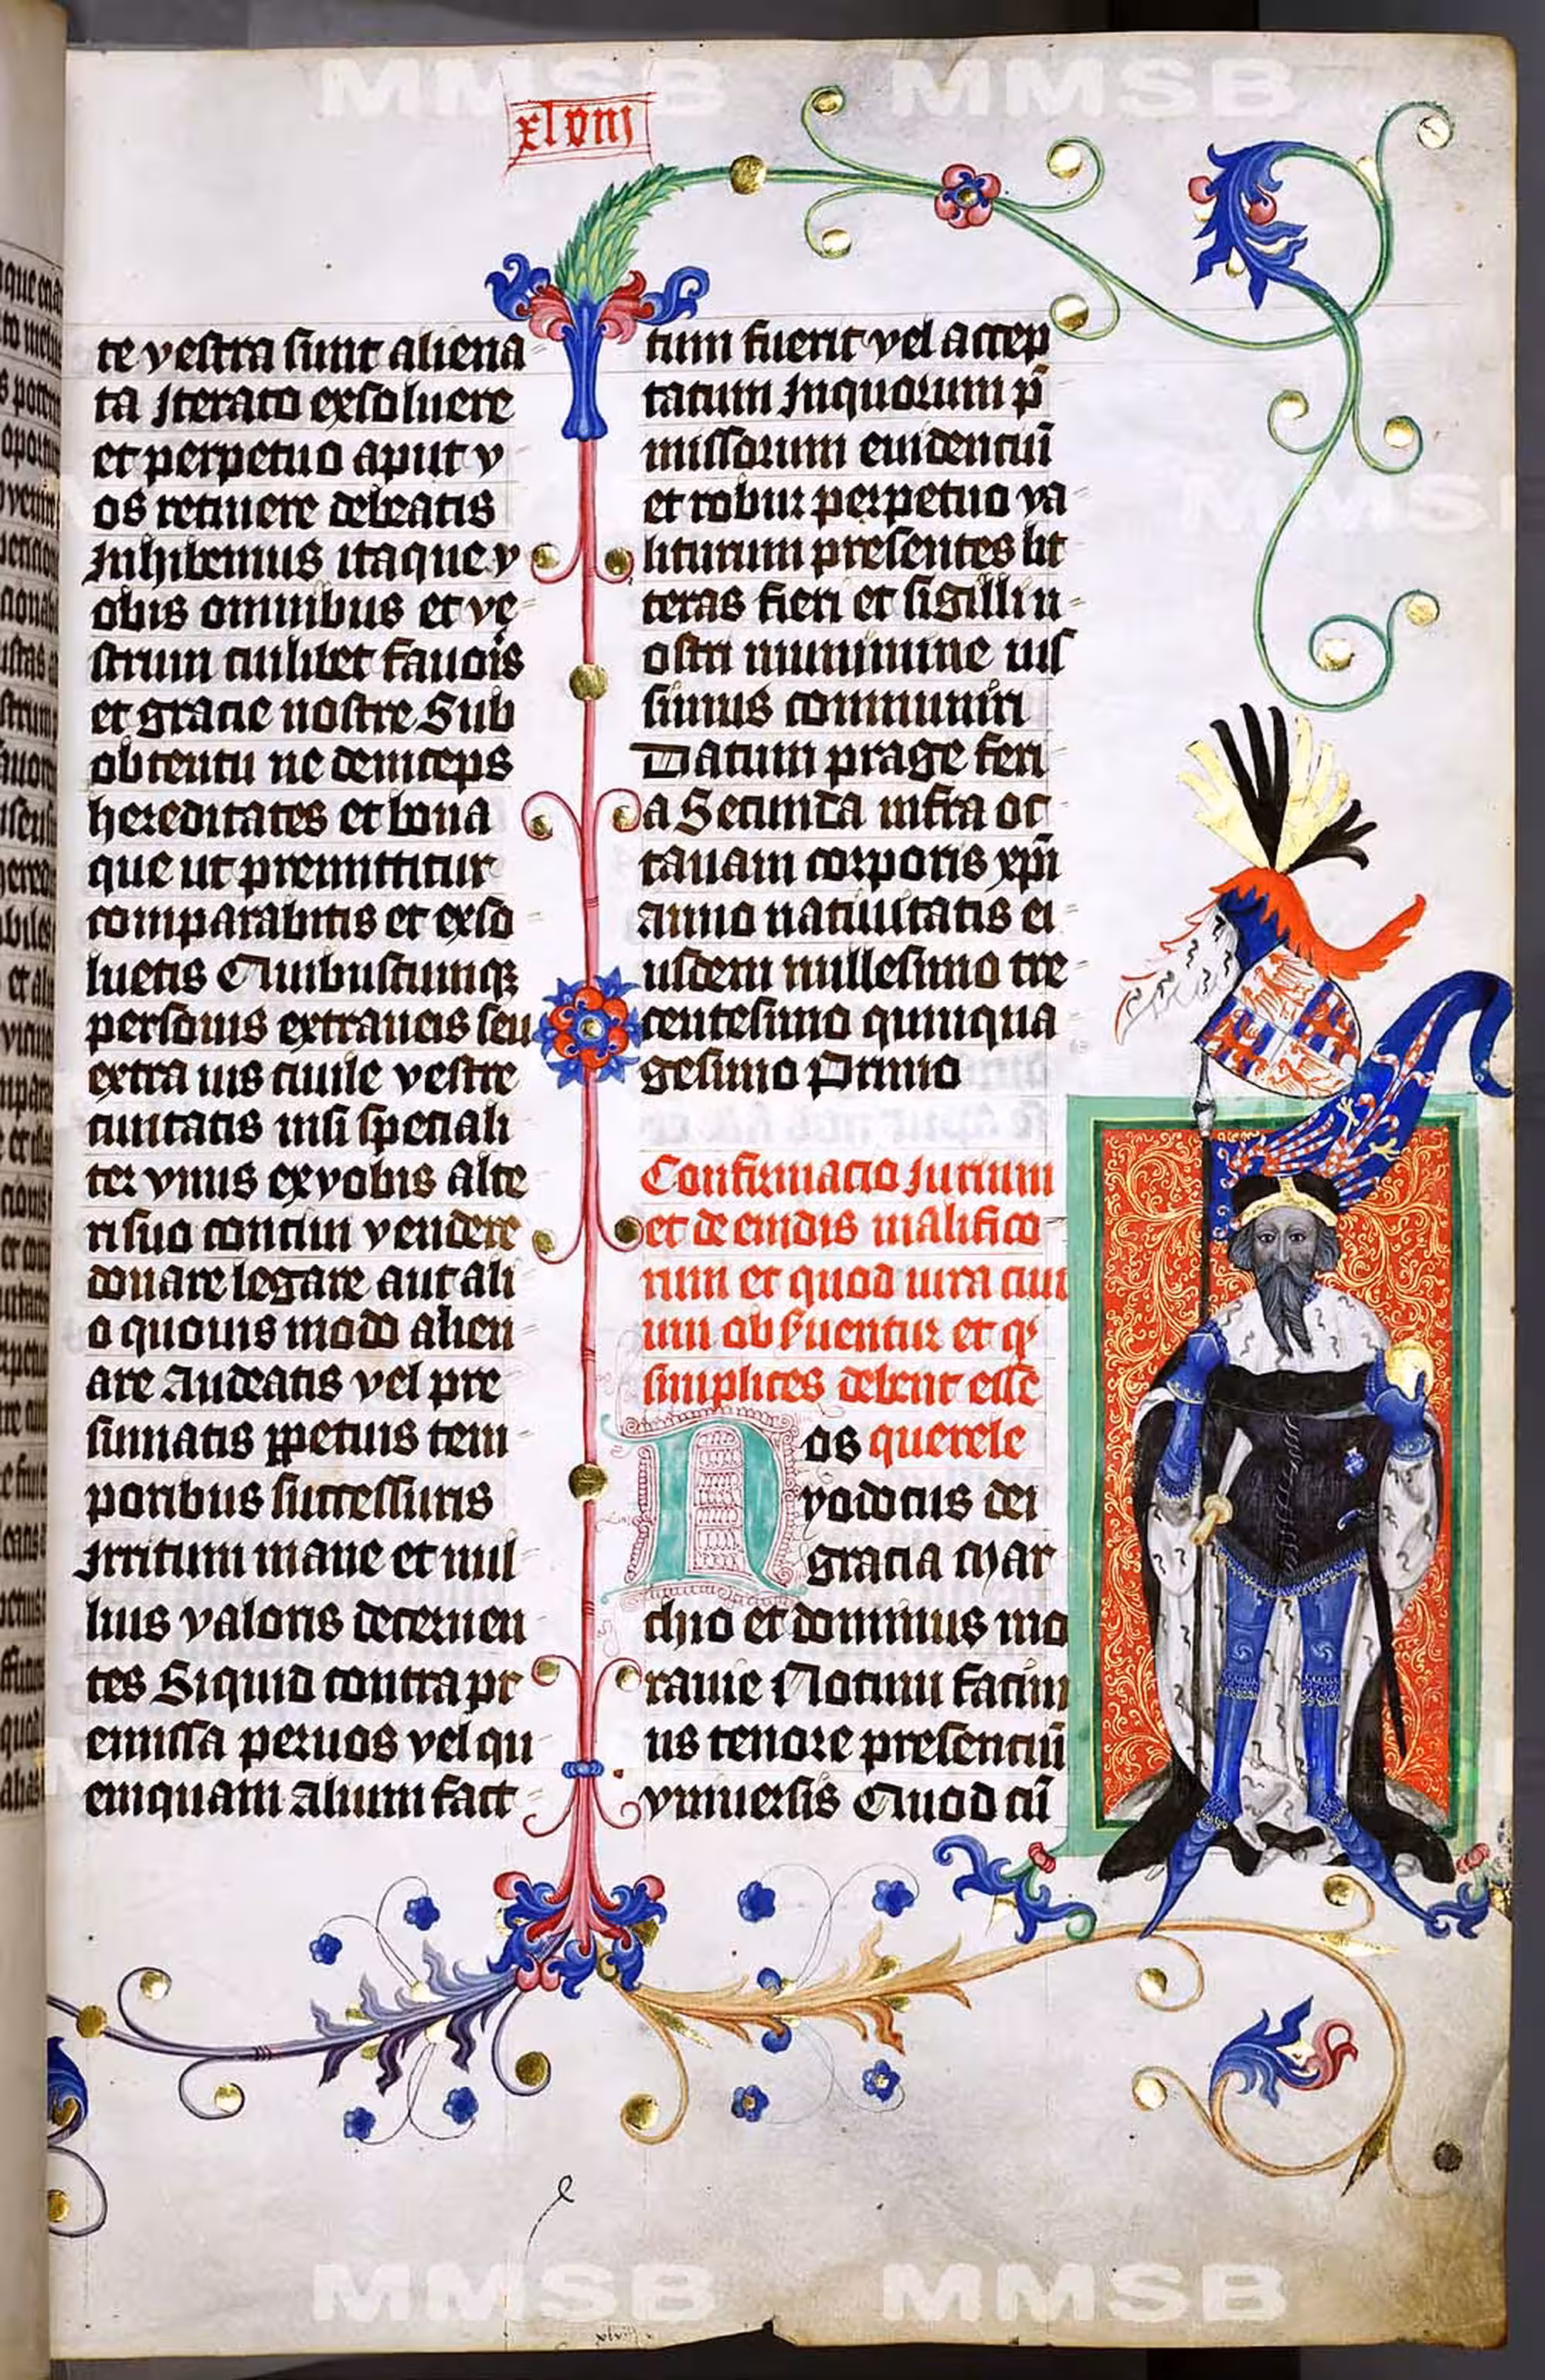 MMSB MMSB
xlviij
te vestra sunt aliena
ta Iterato exsoluere
et perpetuo aput v
os retinere debeatis
Inhibemus itaque v
obis omnibus et ve
strum cuilibet fauoris
et gracie nostre Sub
obtentu ne deinceps
hereditates et bona
que ut premittitur
comparabitis et exso
luetis Quibuscumqꝫ
personis extraneis seu
extra ius ciuile vestre
ciuitatis nisi speciali
ter vnus ex vobis alte
ri suo conciui vendere
donare legare aut ali
o quouis modo alien
are Audeatis vel pre
sumatis ꝑpetuis tem
poribus successuris
Irritum inane et nul
lius valoris decernen
tes Siquid contra pr
emissa per vos vel qu
emquam alium fact
tum fuerit vel accep
tatum Inquorum p̄
missorum euidenciū
et robur perpetuo va
liturum presentes lit
teras fieri et sigilli n
ostri munimine iuſ
simus communiri
Datum prage feri
a Secunda infra oc
tauam corporis xp̄i
anno natiuitatis ei
usdem millesimo tre
centesimo quinqua
gesimo Primo
Confirmacio Iurium
et de emdis malifico
rum et quod iura ciui
um obſuentur et qͥ
simplices debent esse
Nos querele
yodocus dei
gracia Mar
chio et dominus mo
rauie Notum facim
us tenore presenciū
vniuersis Quod cū
MMSB MMSB